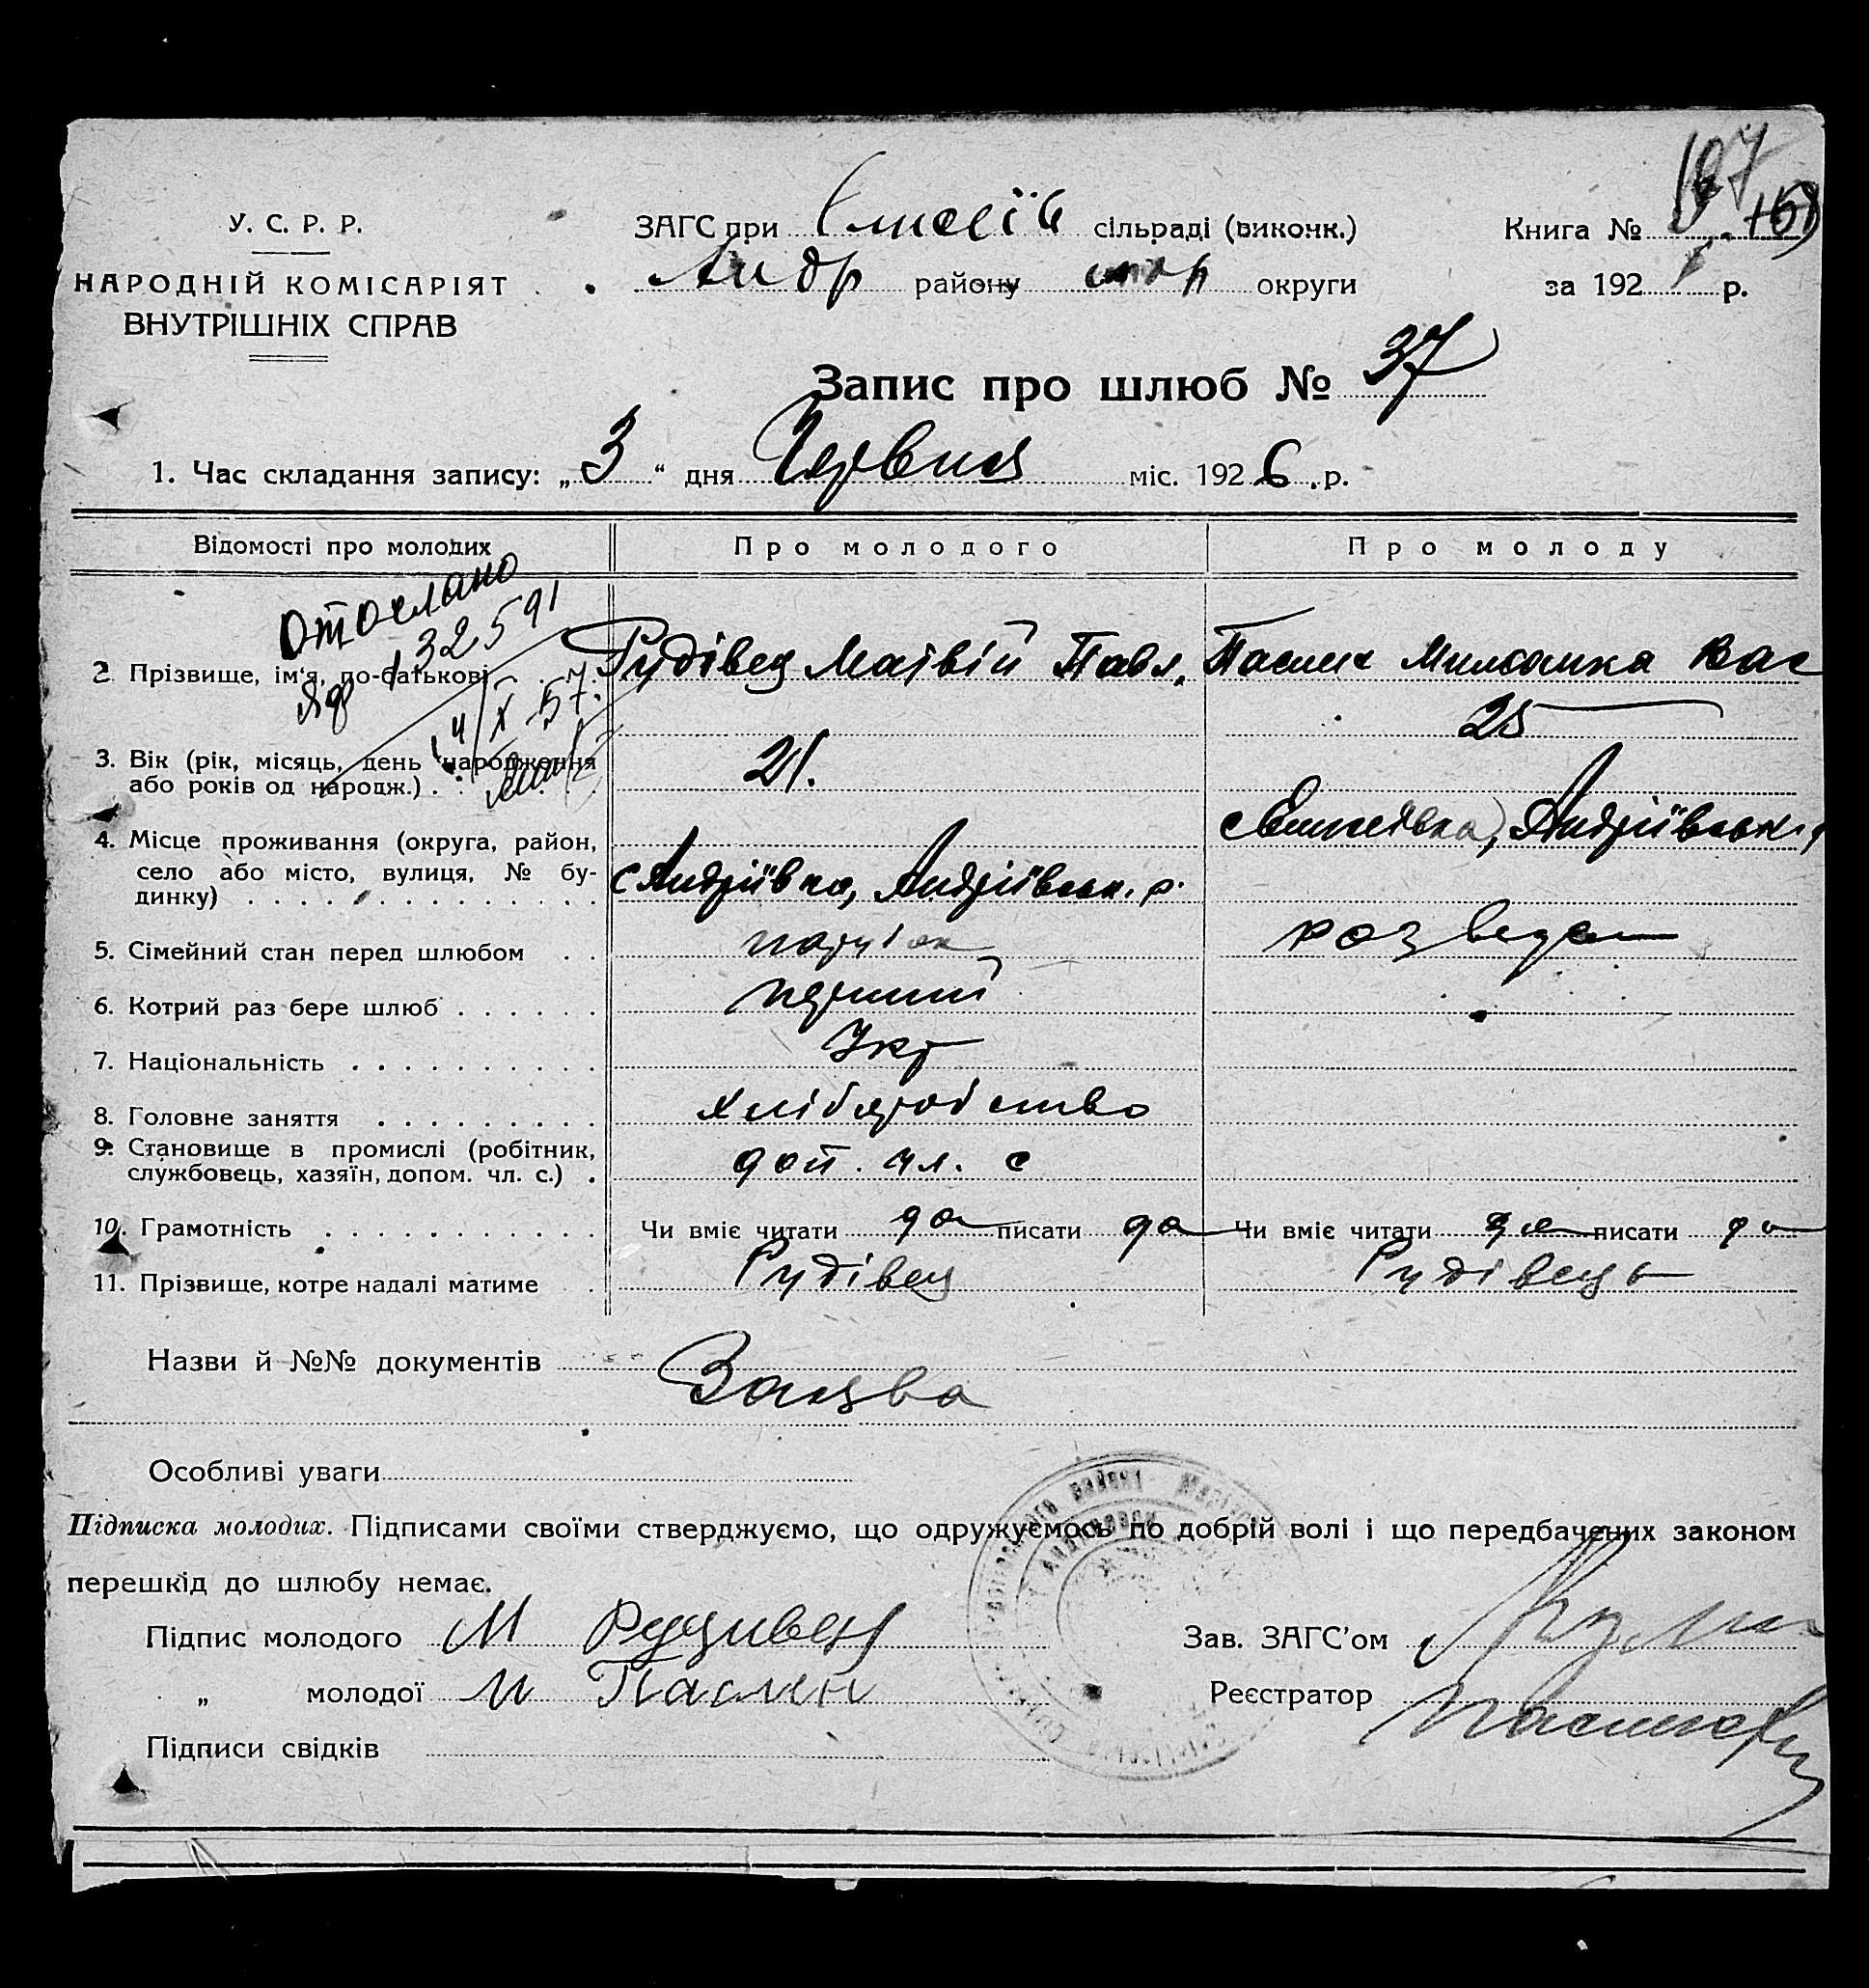 У. С. Р. Р.
НАРОДНІЙ КОМІСАРІЯТ
ВНУТРІШНІХ СПРАВ
ЗАГС при сільраді (виконк.)
Андр району округи
Книга №
за 192 р.
Запис про шлюб № 37
1. Час складання запису: „3“ дня Червня міс. 1926 р.
Відомості про молодих
Про молодого
Про молоду
Отослано
132591
2. Прізвище, ім'я, по-батькові
Рудівец Матвій Павл.
Вас
3. Вік (рік, місяць, день народження
або років од народж.)
21.
25
4. Місце проживання (округа, район,
село або місто, вулиця, № бу-
динку)
с Андріївка, Андріївськ. р.
Андріївськ.
5. Сімейний стан перед шлюбом
розведен
6. Котрий раз бере шлюб
перший
7. Національність
Укр
8. Головне заняття
хліборобство
9. Становище в промислі (робітник,
службовець, хазяїн, допом. чл. с.)
доп. чл. с
10. Грамотність
Чи вміє читати да писати да
Чи вміє читати да писати да
11. Прізвище, котре надалі матиме
Рудівец
Рудівець
Назви й №№ документів
Особливі уваги
Підписка молодих. Підписами своїми стверджуємо, що одружуємось по добрій волі і що передбачених законом
перешкід до шлюбу немає.
Підпис молодого М Рудивец
„ молодої М Паслен
Підписи свідків
Зав. ЗАГС'ом
Реєстратор